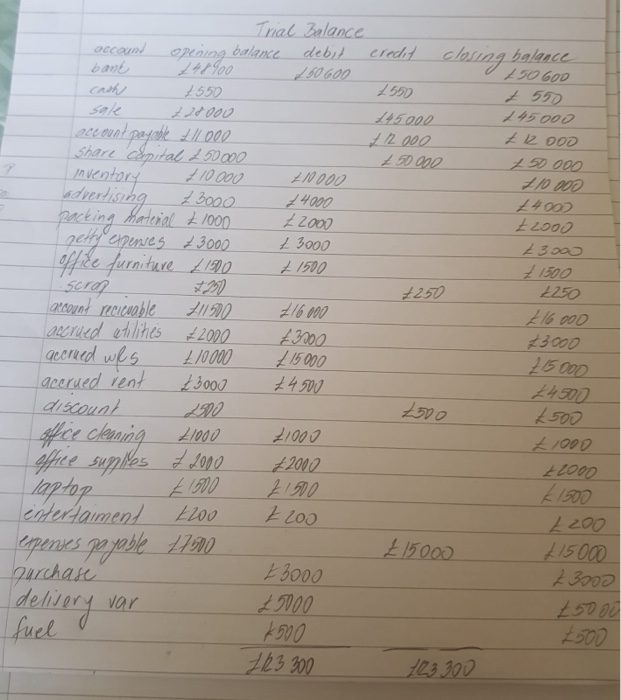 Trial Balance
account opening balance debit credit closing balance
bank £48900 £50600 £50600
cash £550 £550 £550
sale £28000 £45000 £45000
account payable £11000 £12000 £12000
share capital £50000 £50000 £50000
inventory £10000 £10000 £10000
advertising £3000 £4000 £4000
packing material £1000 £2000 £2000
petty expenses £3000 £3000 £3000
office furniture £1500 £1500 £1500
scrap £250 £250 £250
account recievable £11500 £16000 £16000
accrued utilities £2000 £3000 £3000
accrued £10000 £15000 £15000
accrued rent £3000 £4500 £4500
discount £500 £500 £500
office cleaning £1000 £1000 £1000
office supplies £2000 £2000 £2000
laptop £1500 £1500 £1500
entertaiment £200 £200 £200
expenses payable £7500 £15000 £15000
purchase £3000 £3000
delivery var £5000 £5000
fuel £500 £500
£123300 £123300